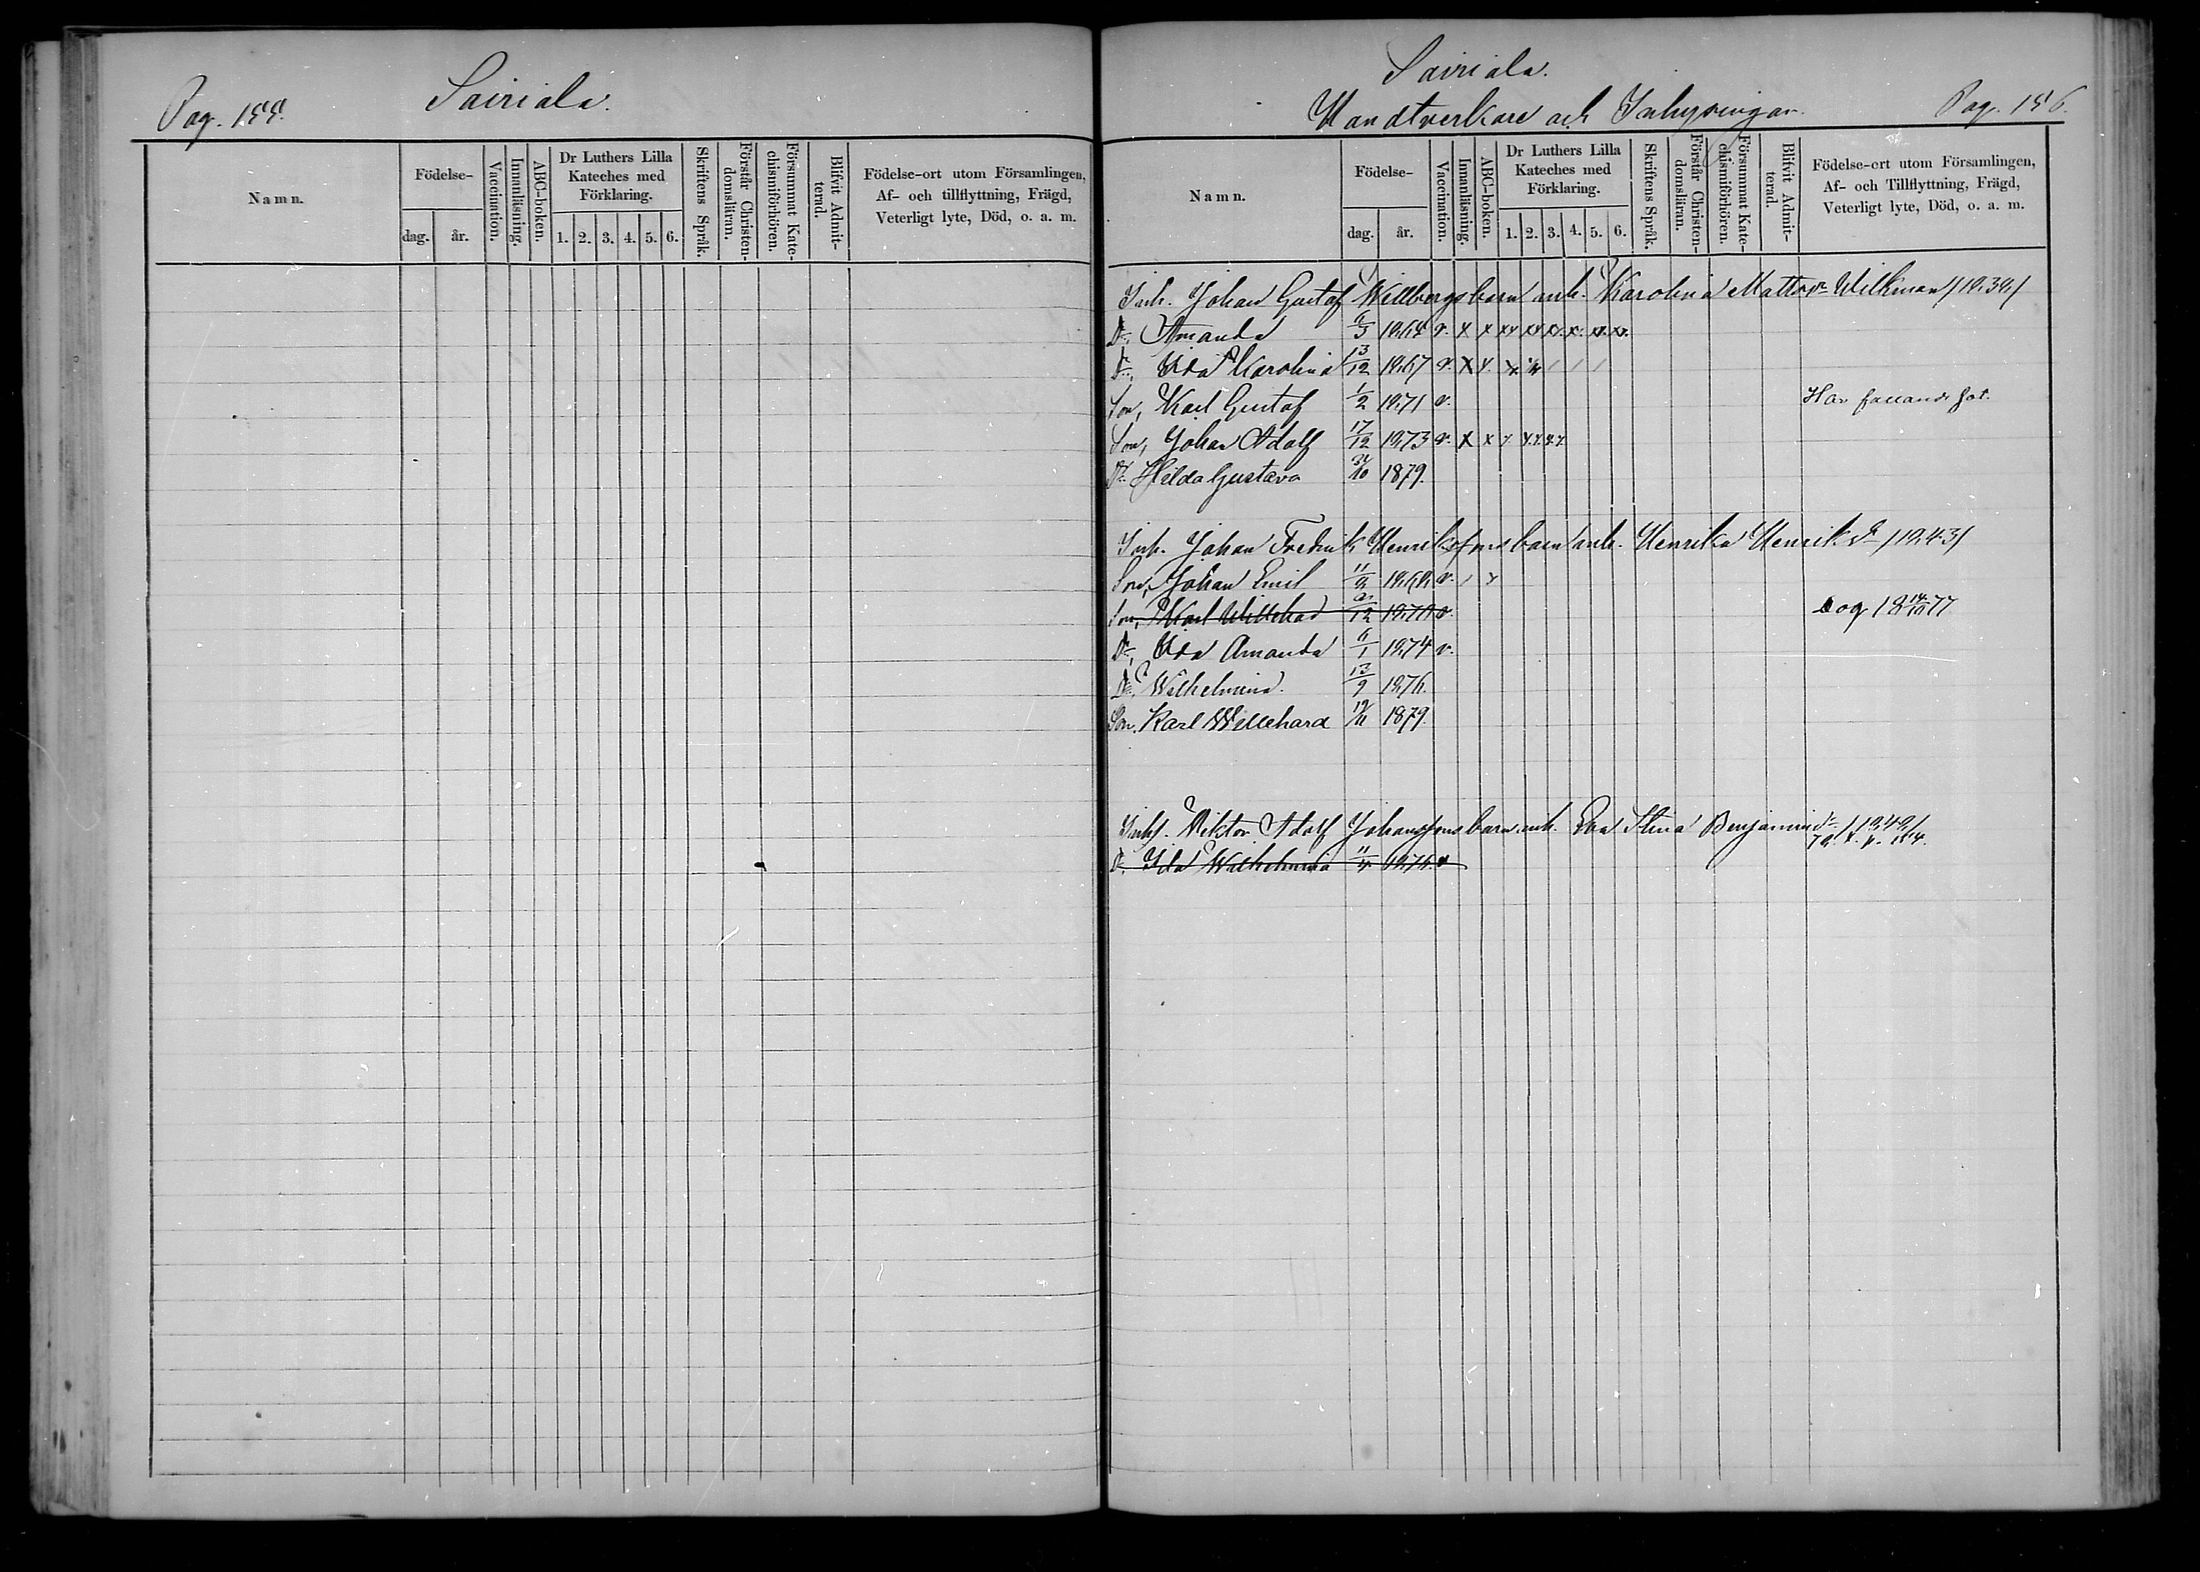 Pag. 155.
Sairiala.
Namn.
Födelse-
dag.
år.
Vaccination.
Innanläsning.
ABC-boken.
Dr Luthers Lilla
Kateches med
Förklaring.
1. 2. 3. 4. 5. 6.
Skriftens Språk.
Förstår Christen-
domsläran.
Försummat Kate-
chismiförhören.
Blifvit Admit-
terad.
Födelse-ort utom Församlingen,
Af- och tillflyttning, Frägd,
Veterligt lyte, Död, o. a. m.
Sairiala.
Handtverkare och Inhysingar.
Pag. 156.
Namn.
Födelse-
dag.
år.
Vaccination.
Innanläsning.
ABC-boken.
Dr Luthers Lilla
Kateches med
Förklaring.
1. 2. 3. 4. 5. 6.
Skriftens Språk.
Förstår Christen-
domsläran.
Försummat Kate-
chismiförhören.
Blifvit Admit-
terad.
Födelse-ort utom Församlingen,
Af- och Tillflyttning, Frägd,
Veterligt lyte, Död, o. a. m.
Inh. Johan Gustaf Willbergs barn enk. Karolina Mattsdr Wilkman
Dr, Amanda 1864 v. x x
Dr, Ida Karolina 13/12 1867 v. x x
Son, Karl Gustaf 1/2 1871 v. Har fallandesot.
Son, Johan Adolf 17/12 1873 v. x x
Dr Hilda Gustava 1879.
Inh. Johan Fredrik Henrikssons barn enh. Henrika Henriksdr /1843/
Son, Johan Emil v.
Son, Karl Willehad v. Dog 18 14/10 77
Dr, Ida Amanda 6/1 1874 v.
Dr, Wilhelmina. 13/9 1876.
Son. Karl Willehard 1879.
Inh. Viktor Adolf Johanssons barn enh. Eva Stina Benjaminsdr /1849/
Dr. Ida Wilhelmina 11/4 1876. v